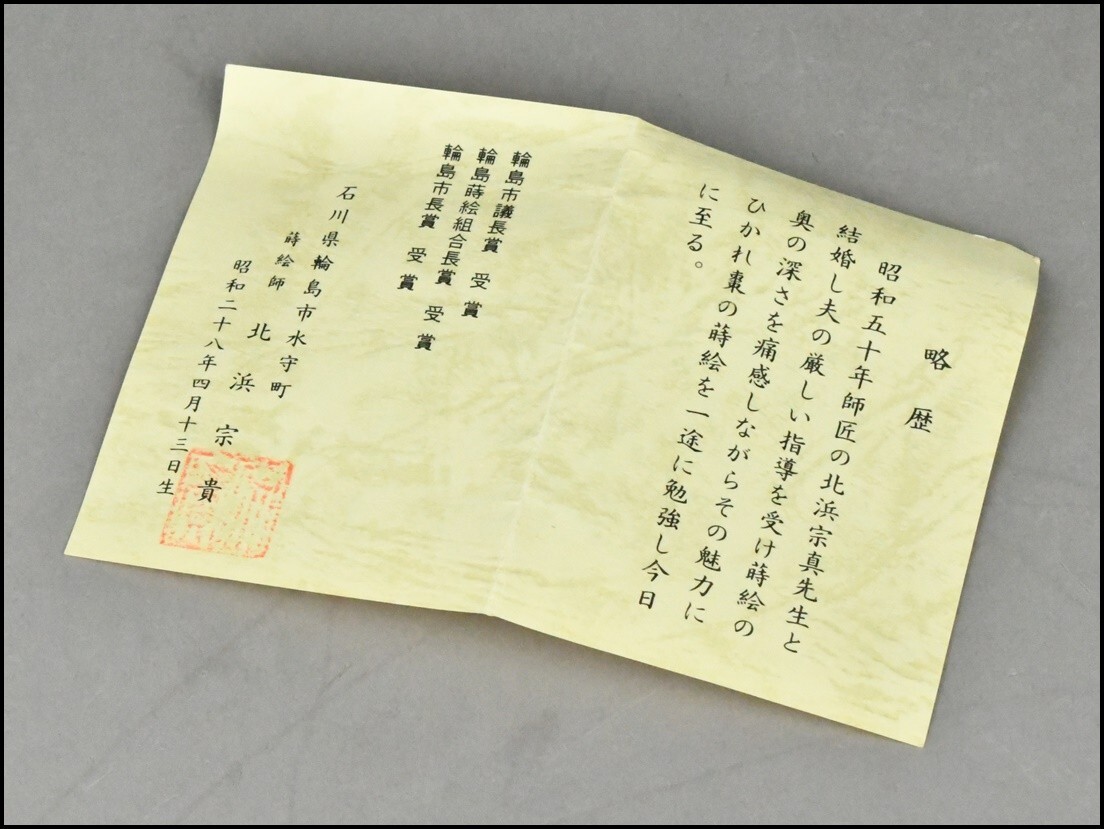 略歴
昭和五十年師匠の北浜宗真先生と
結婚し夫の厳しい指導を受け蒔絵の
奥の深さを痛感しながらその魅力に
ひかれ棗の蒔絵を一途に勉強し今日
に至る。
輪島市議長賞 受賞
輪島蒔絵組合長賞 受賞
輪島市長賞 受賞
石川県輪島市水守町
蒔絵師 北浜宗貴
昭和二十八年四月十三日生